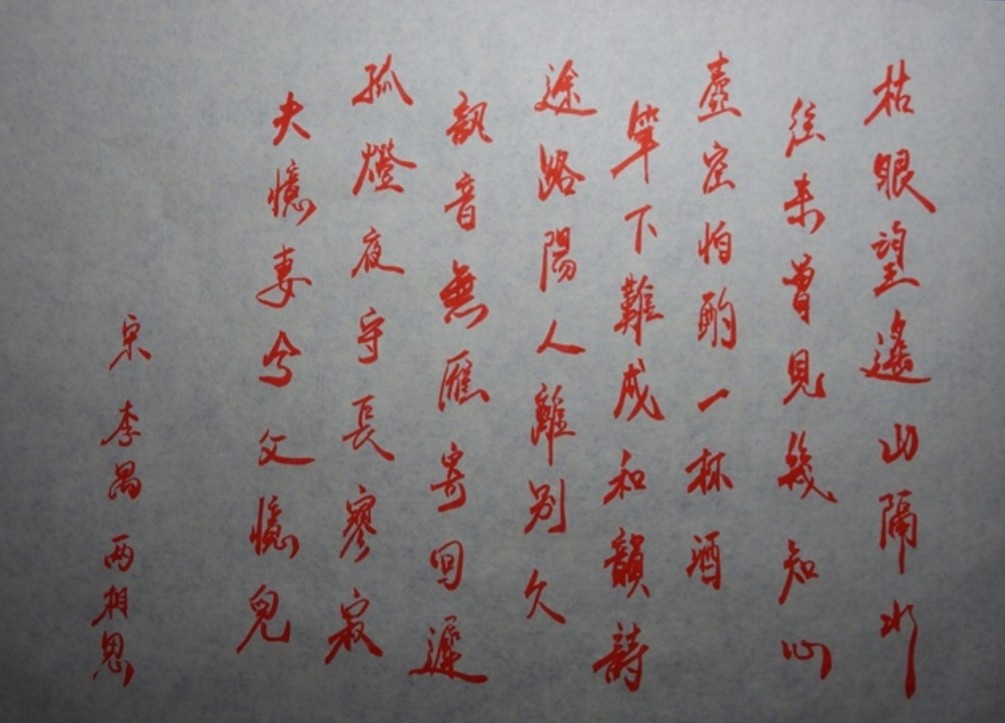 枯眼望遙山隔水
往來曾見幾知心
壺空怕酌一杯酒
筆下難成和韻詩
途路陽人離別久
訊音無雁寄回遲
孤燈夜守長寥寂
夫憶妻兮父憶兒
宋 李禺 两相思